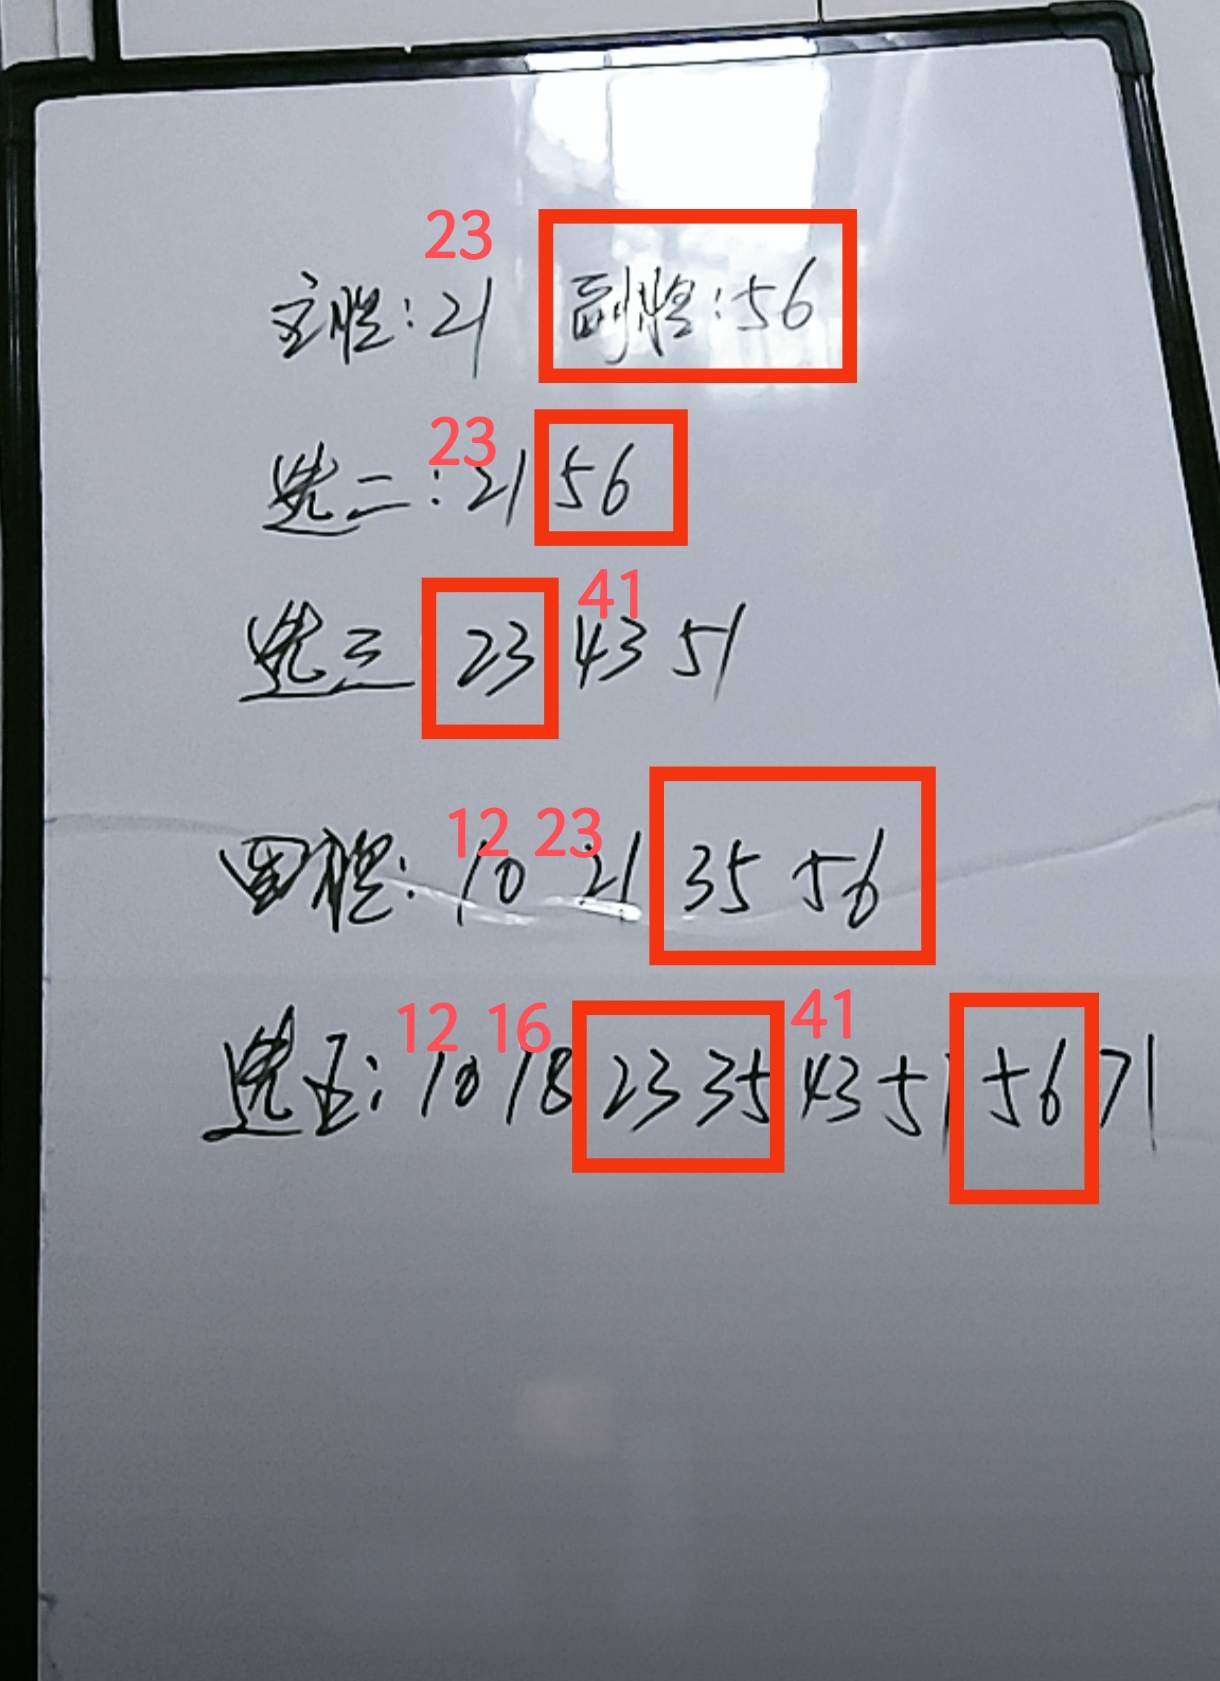 23
主胆:21 副胆:56
23
选二:21 56
41
选三 23 43 51
12 23
四胆:10 21 35 56
12 16 41
选五:10 18 23 35 43 51 56 71